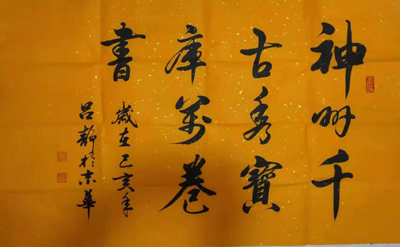 神州千
古秀寶
庫萬卷
書
歲在己亥年
呂靜於京華